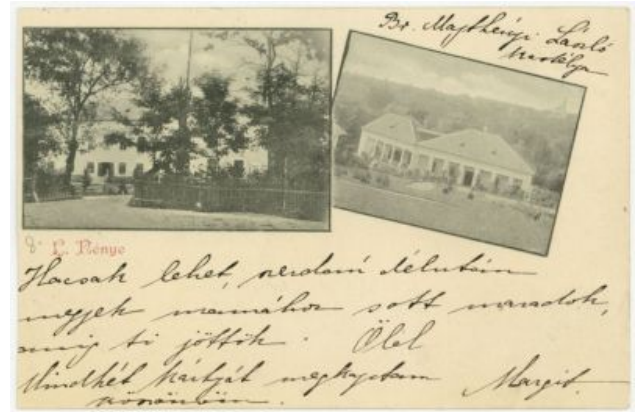 Br. Majthényi László
kastélya
L. Kénye
Hacsak lehet, szerdán délután
megyek mamához sott maradok,
amig ti jöttök. Ölel
Mindkét kártyát megkaptam Margit.
köszönöm.